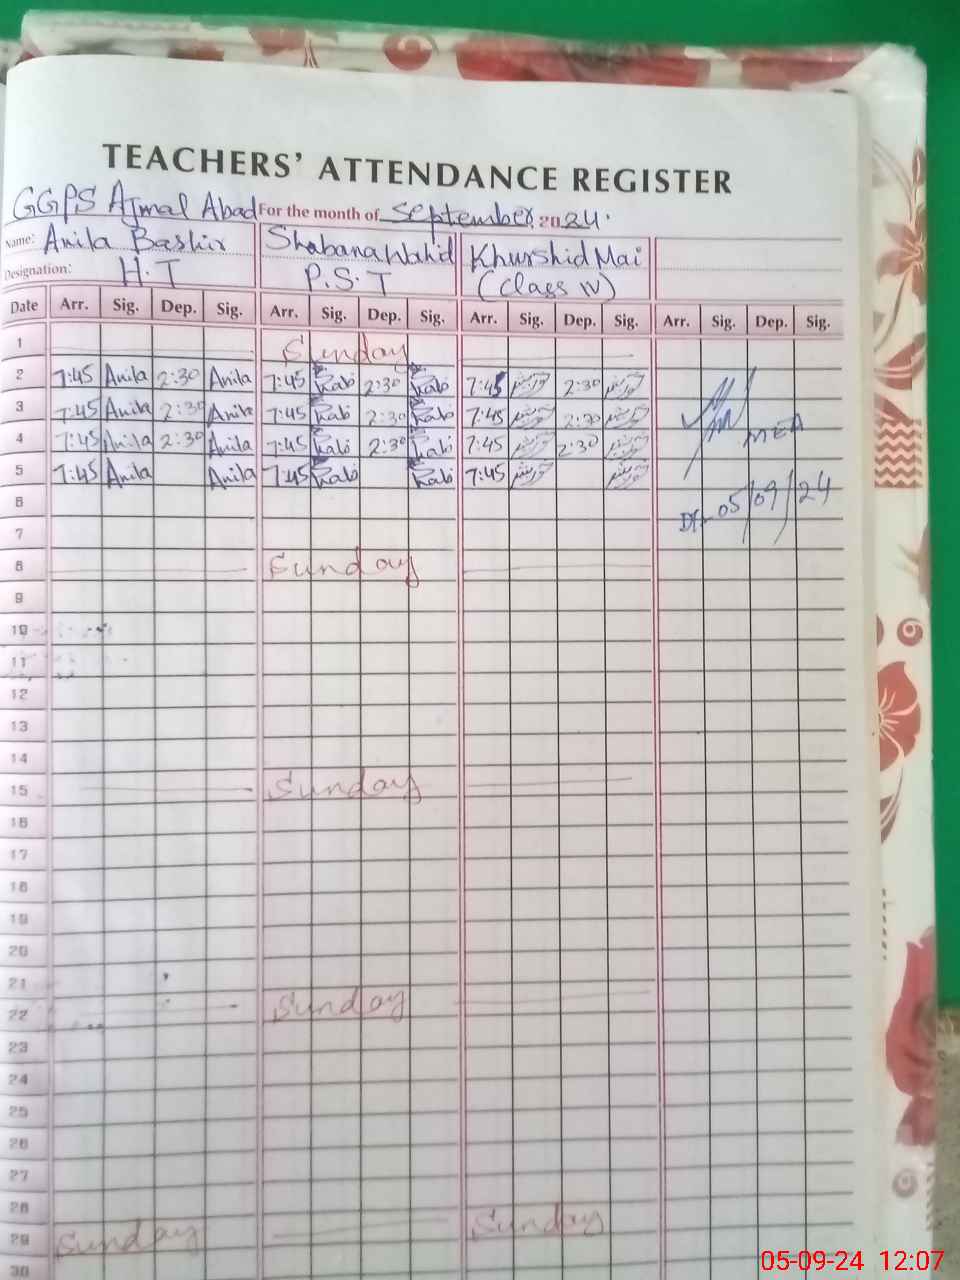 TEACHERS' ATTENDANCE REGISTER
GGPS Ajmal Abad For the month of September 2024.
Name: Anila Bashir Shabana Wahid Khurshid Mai
Designation: H.T P.S.T (Class IV)
Date Arr. Sig. Dep. Sig. Arr. Sig. Dep. Sig. Arr. Sig. Dep. Sig. Arr. Sig. Dep. Sig.
1 Sunday
2 7:45 Anila 2:30 Anila 7:45 2:30 7:45 2:30
3 7:45 Anila 2:30 Anila 7:45 2:30 7:45 2:30
4 7:45 Anila 2:30 Anila 7:45 2:30 7:45 2:30 MEA
5 7:45 Anila Anila 7:45 7:45
6 05/09/24
7
8 Sunday
9
10
11
12
13
14
15 Sunday
16
17
18
19
20
21
22 Sunday
23
24
25
26
27
28
29 Sunday Sunday
30
05-09-24 12:07